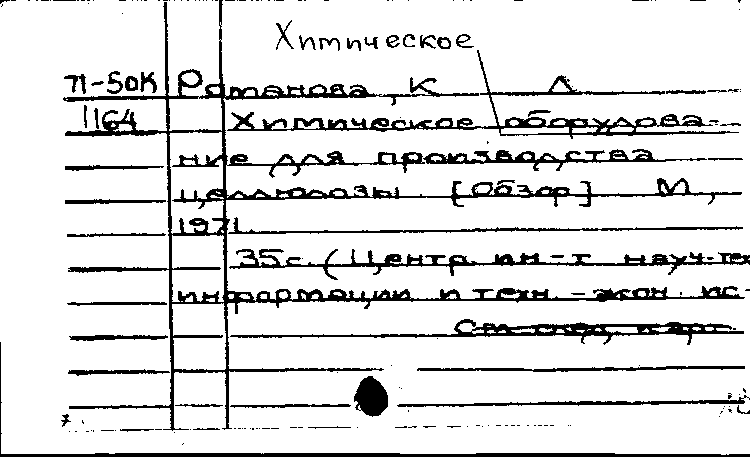 Химическое
71-50К Романова, К Л
1164 Химическое оборудова-
ние для производства
целлюлозы. [Обзор] М,
1971.
35с. (Центр. ин-т науч-тех
информации и техн.-экон. ис-
См. след, карт.